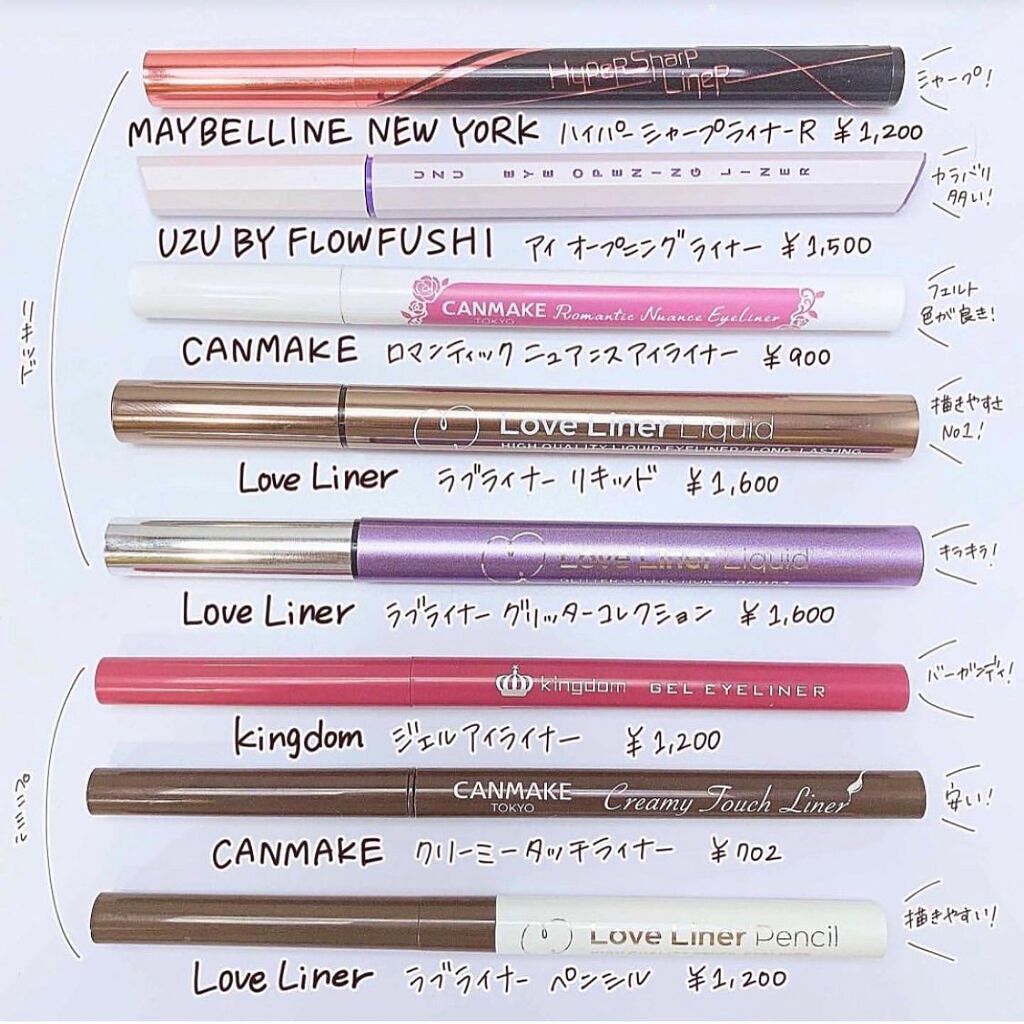 HYPERSHARP
LINER
シャープ!
MAYBELLINE NEW YORK ハイパーシャープライナーR ¥1,200
UZU EYE OPENING LINER
カラバリ
多い!
UZU BY FLOWFUSHI アイオープニングライナー ¥1,500
CANMAKE Romantic Nuance Eyeliner
TOKYO
フェルト
色が良き!
CANMAKE ロマンティックニュアンスアイライナー ¥900
リキッド
Love Liner Liquid
HIGH QUALITY LIQUID EYELINER / LONG-LASTING
描きやすさ
No1!
Love Liner ラブライナー リキッド ¥1,600
Love Liner Liquid
キラキラ!
Love Liner ラブライナー グリッターコレクション ¥1,600
kingdom GEL EYELINER
バーガンディ!
kingdom ジェルアイライナー ¥1,200
CANMAKE Creamy Touch Liner
TOKYO
安い!
CANMAKE クリーミータッチライナー ¥702
Love Liner Pencil
描きやすい!
Love Liner ラブライナー ペンシル ¥1,200